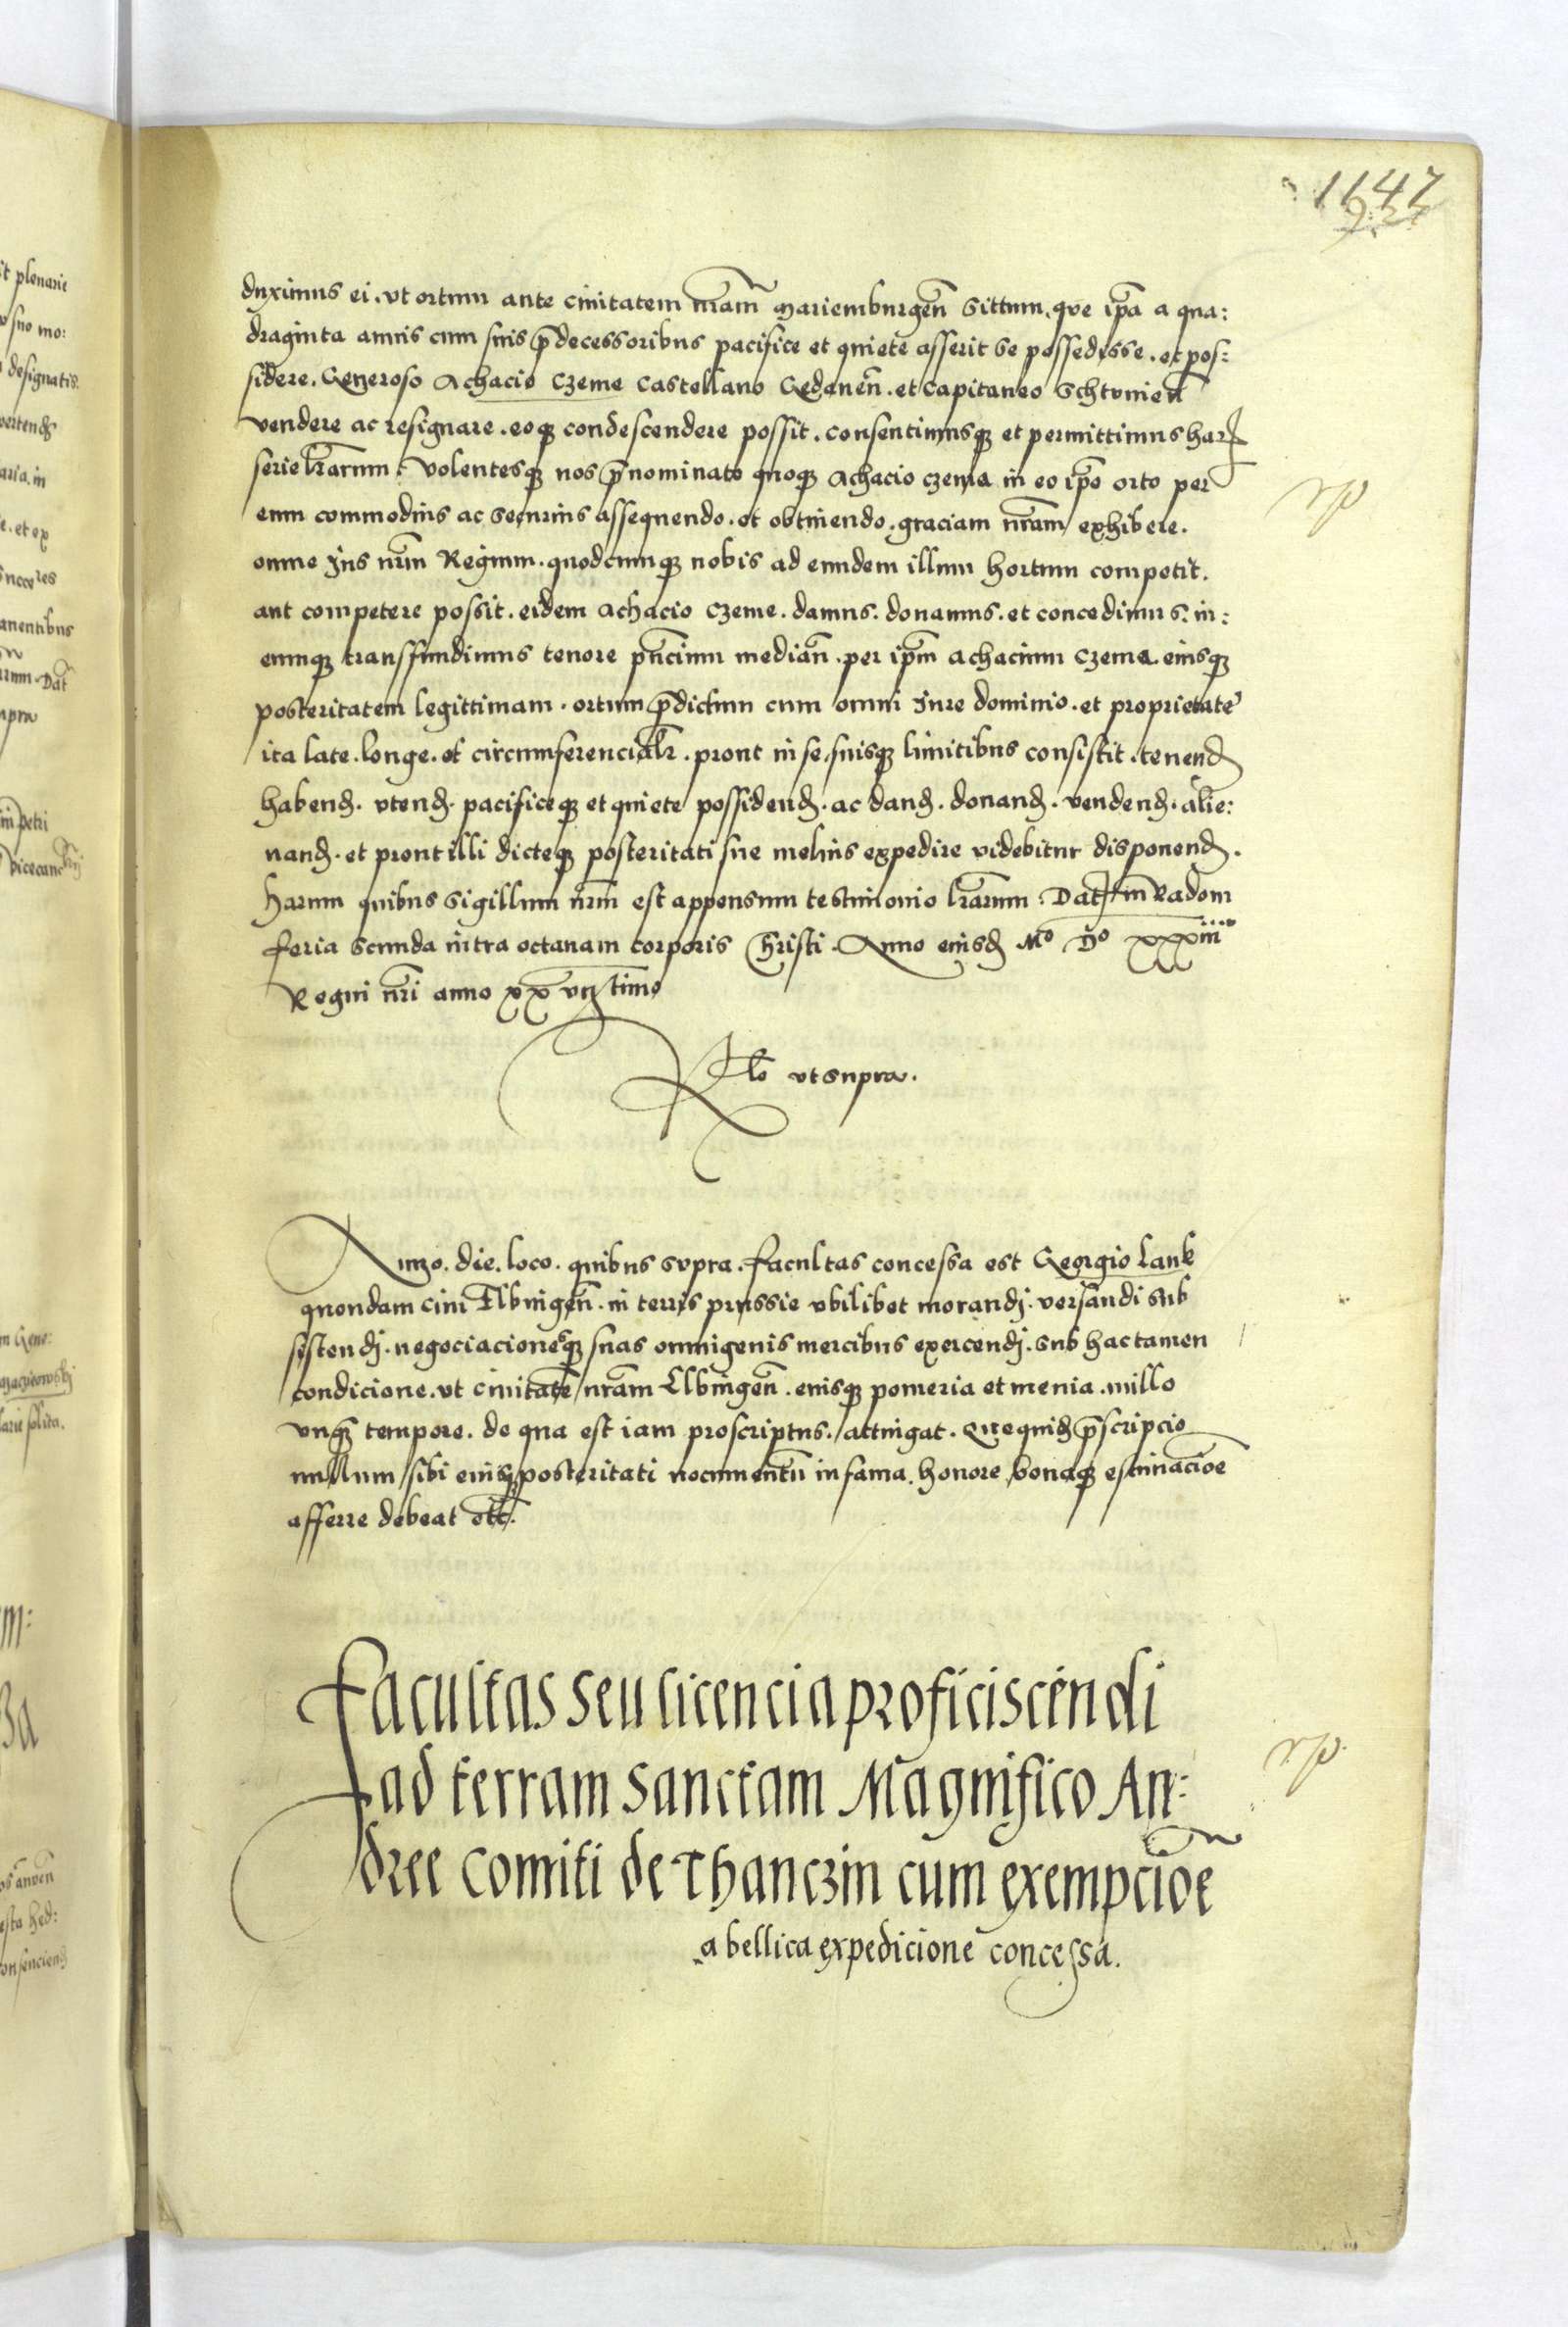 1147
937
duximus ei. ut ortum ante ciuitatem nr̃am Mariemburgeñ Sittum. que ip̃a a qua:
draginta annis cum suis p̃decessoribus pacifice et quiete asserit se possedisse. et pos:
sidere. Generoso Achacio Czeme Castellano Gedaneñ. et Capitaneo Schtumieñ
vendere ac resignare. eoq̃ condescendere possit. consentimusq̃ et permittimus har̃
serie lr̃arum. Volentesq̃ nos p̃nominato quoq̃ Achacio Czema in eo ip̃o orto per
eum commodius ac securius assequendo. et obtinendo. graciam nr̃am exhibere.
omne Jus nr̃m Regium. quodcumq̃ nobis ad eundem illum hortum competit.
aut competere possit. eidem Achacio Czeme. damus. donamus. et concedimus. in:
eumq̃ transfundimus tenore pñcium mediañ. per ip̃m Achacium Czema. eiusq̃
posteritatem legittimam. ortum p̃dictum cum omni Jure dominio. et proprietate
ita late. longe. et circumferencialr̃. prout in se. suisq̃ limitibus consistit. tenend̃
habend̃. utend̃. pacificeq̃ et quiete possidend̃. ac dand̃. donand̃. vendend̃. alie:
nand̃. et prout illi dicteq̃ posteritati sue melius expedire videbitur disponend̃.
Harum quibus Sigillum nr̃m est appensum testimonio lr̃arum. Dat̃ in Radom
feria scunda intra octauam corporis Christi. Anno eiusd̃ Mº Dº xxxiii
Regni nr̃i anno xx vii timo
Rlõ ut supra.
Anno. die. loco. quibus supra. facultas concessa est Georgio Lank
quondam ciui Elbingeñ. in terris prussie ubilibet morandj. versandi sub
sistendj. negociacionesq̃ suas omnigenis mercibus exercendj. sub hac tamen
condicione. ut ciuitatẽ nr̃am Elbingeñ. eiusq̃ pomeria et menia. nullo
unq̃ tempore. de qua est iam proscriptus. attingat. Quequid̃ p̃scripcio
nullum sibi eiusq̃ posteritati nocumentũ in fama. honore bonaq̃ estimacioẽ
afferre debeat etc̃.
Facultas seu licencia proficiscendi
ad terram Sanctam Magnifico An:
dree Comiti de Thanczin cum exempcioẽ
a bellica expedicione concessa.
rp
rp.